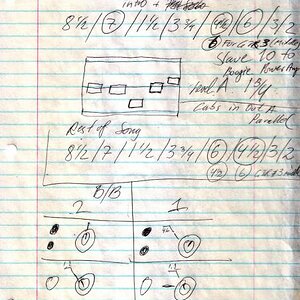 intro +
8½ / 7 / 1½ / 3¾ / 4½ / 6 / 3/2
6 For G #3 (Middle)
Slave 10 to
Boogie
A. 1¾
Cabs in Out A
Parallel
Rest of Song
8½ / 7 / 1½ / 3¾ / 6 / 4½ / 3/2
4½ 6 G #3
B/B
2 1